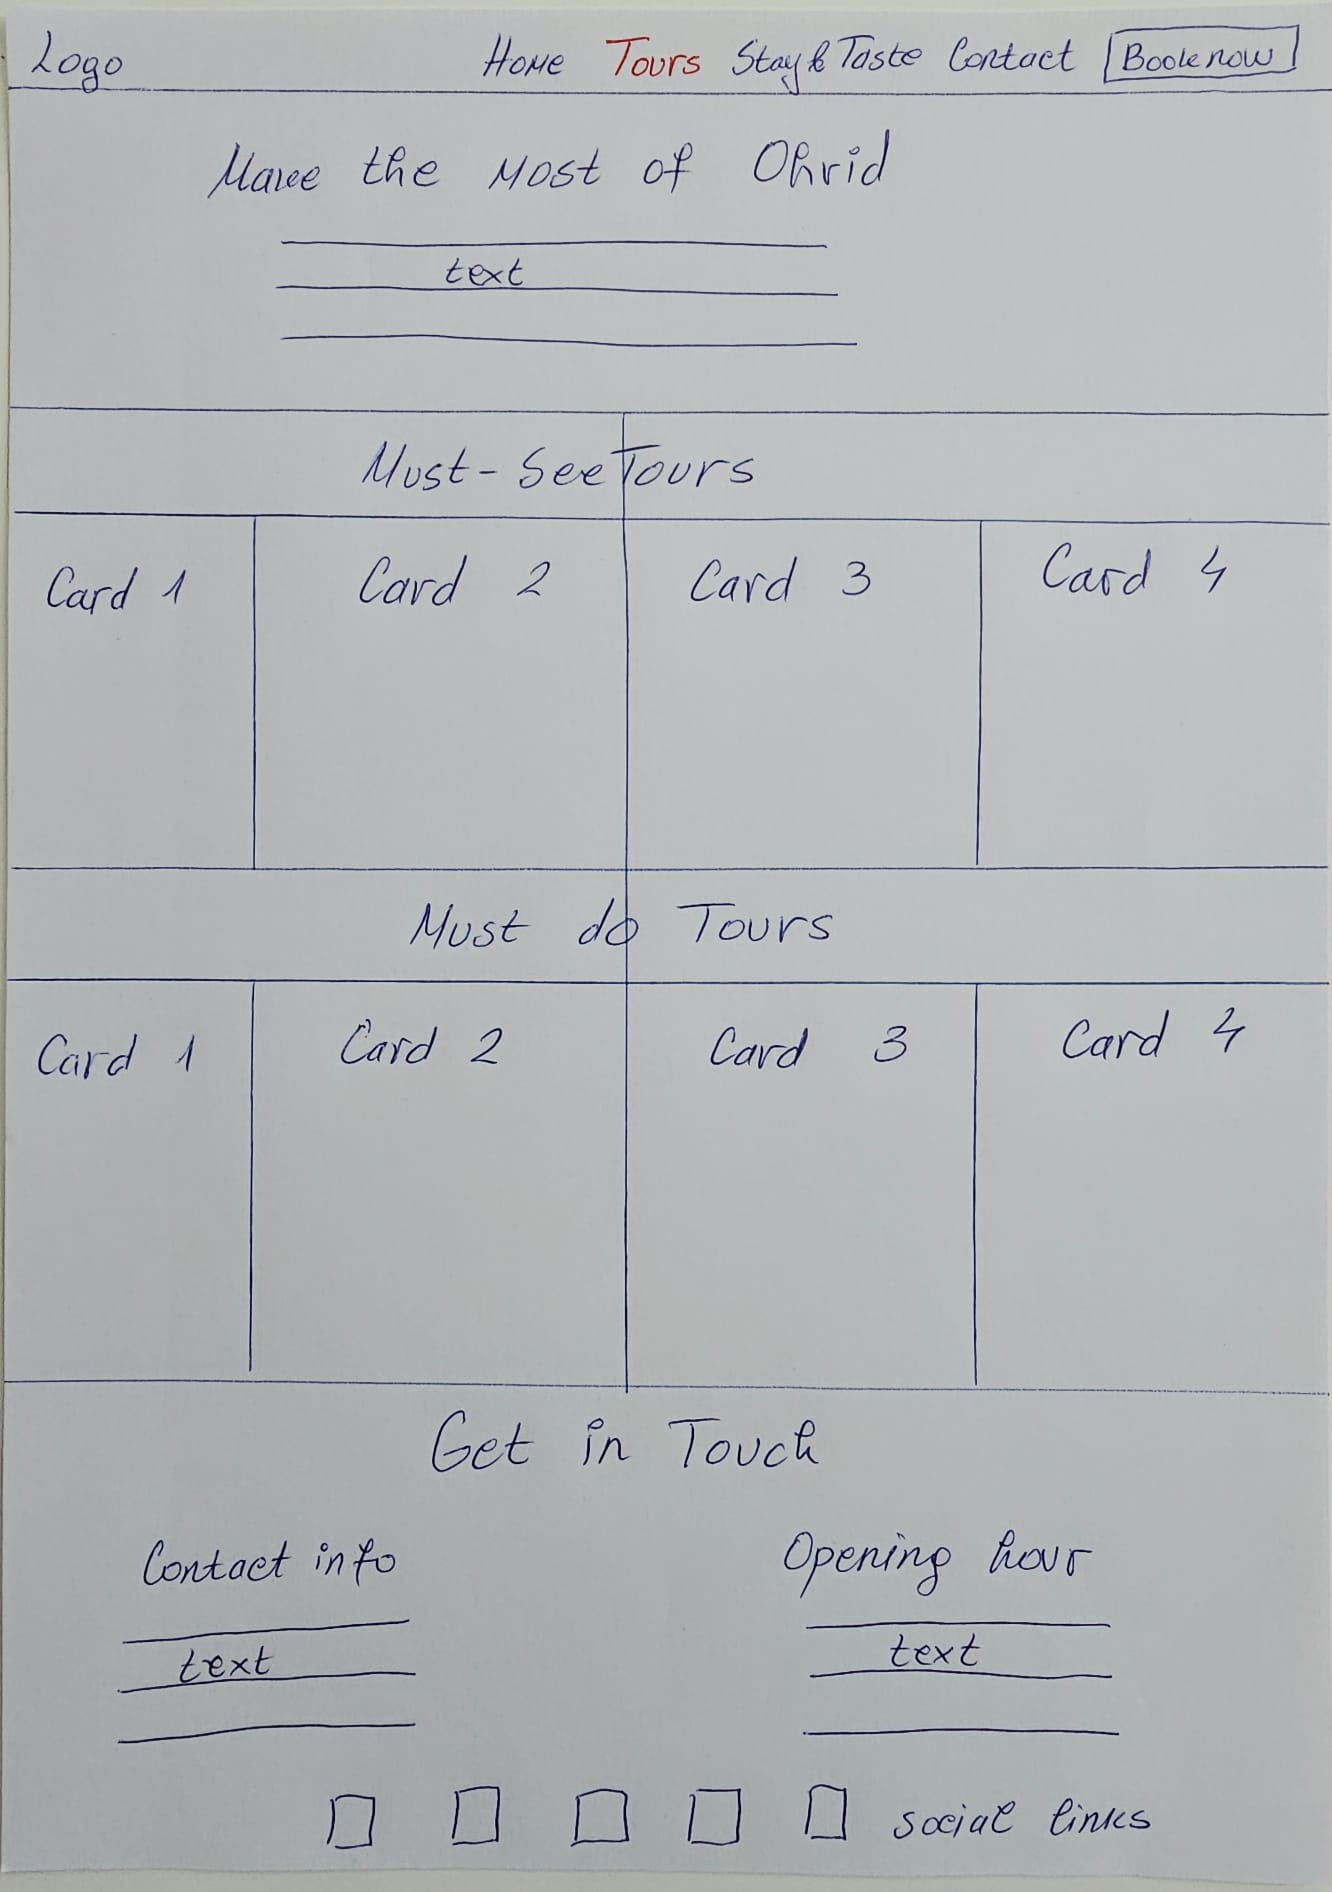 Logo Home Tours Stay & Taste Contact Book now
Make the most of Ohrid
text
Must-See Tours
Card 1 Card 2 Card 3 Card 4
Must do Tours
Card 1 Card 2 Card 3 Card 4
Get in Touch
Contact info Opening hour
text text
social links